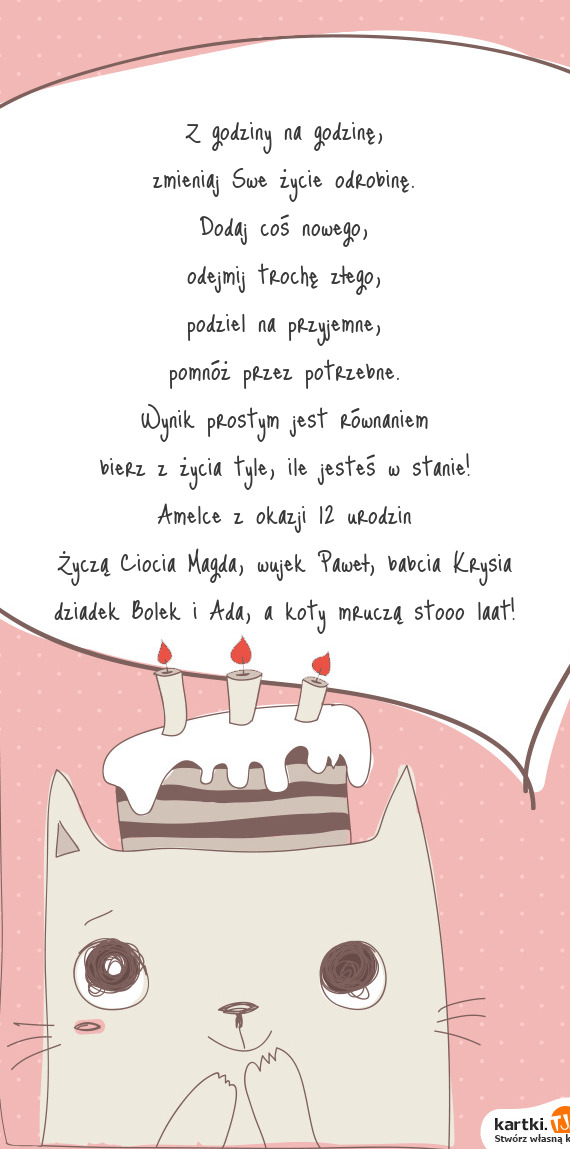 Z godziny na godzinę,
zmieniaj Swe życie odrobinę.
Dodaj coś nowego,
odejmij trochę złego,
podziel na przyjemne,
pomnóż przez potrzebne.
Wynik prostym jest równaniem
bierz z życia tyle, ile jesteś w stanie!
Amelce z okazji 12 urodzin
Życzą Ciocia Magda, wujek Paweł, babcia Krysia
dziadek Bolek i Ada, a koty mruczą stooo laat!
kartki.TJ
Stwórz własną k